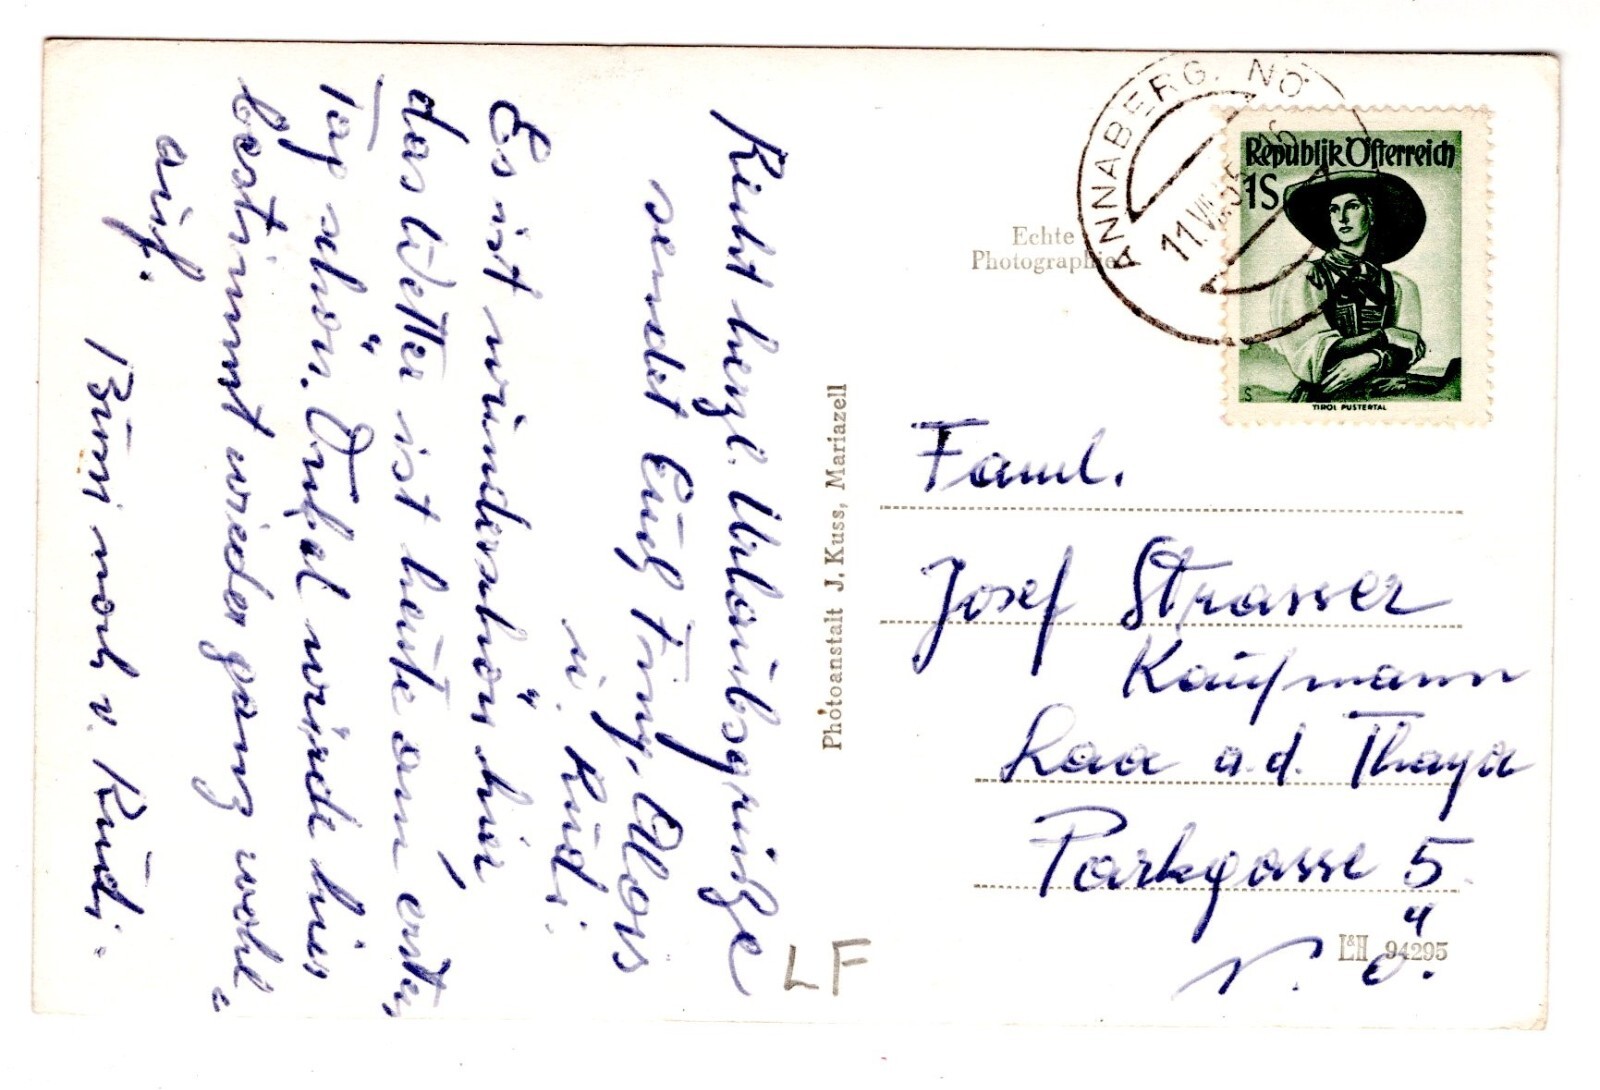 Recht herzl. Urlaubsgrüße
sendet Euch Tmy, Alois
u. Rudi.
Es ist wunderschön hier
das Wetter ist heute am ersten
Tag schön. Onkel würde hier
bestimmt wieder ganz wohl
auf.
Bussi noch v. Rudi.
Photoanstalt J. Kuss, Mariazell
LF
Echte
Photographie
ANNABERG. NÖ
Republik Österreich
1S
S
TIROL PUSTERTAL
Faml.
Josef Strasser
Kaufmann
Laa a.d. Thaya
Parkgasse 5
N.Ö.
L&H 94295